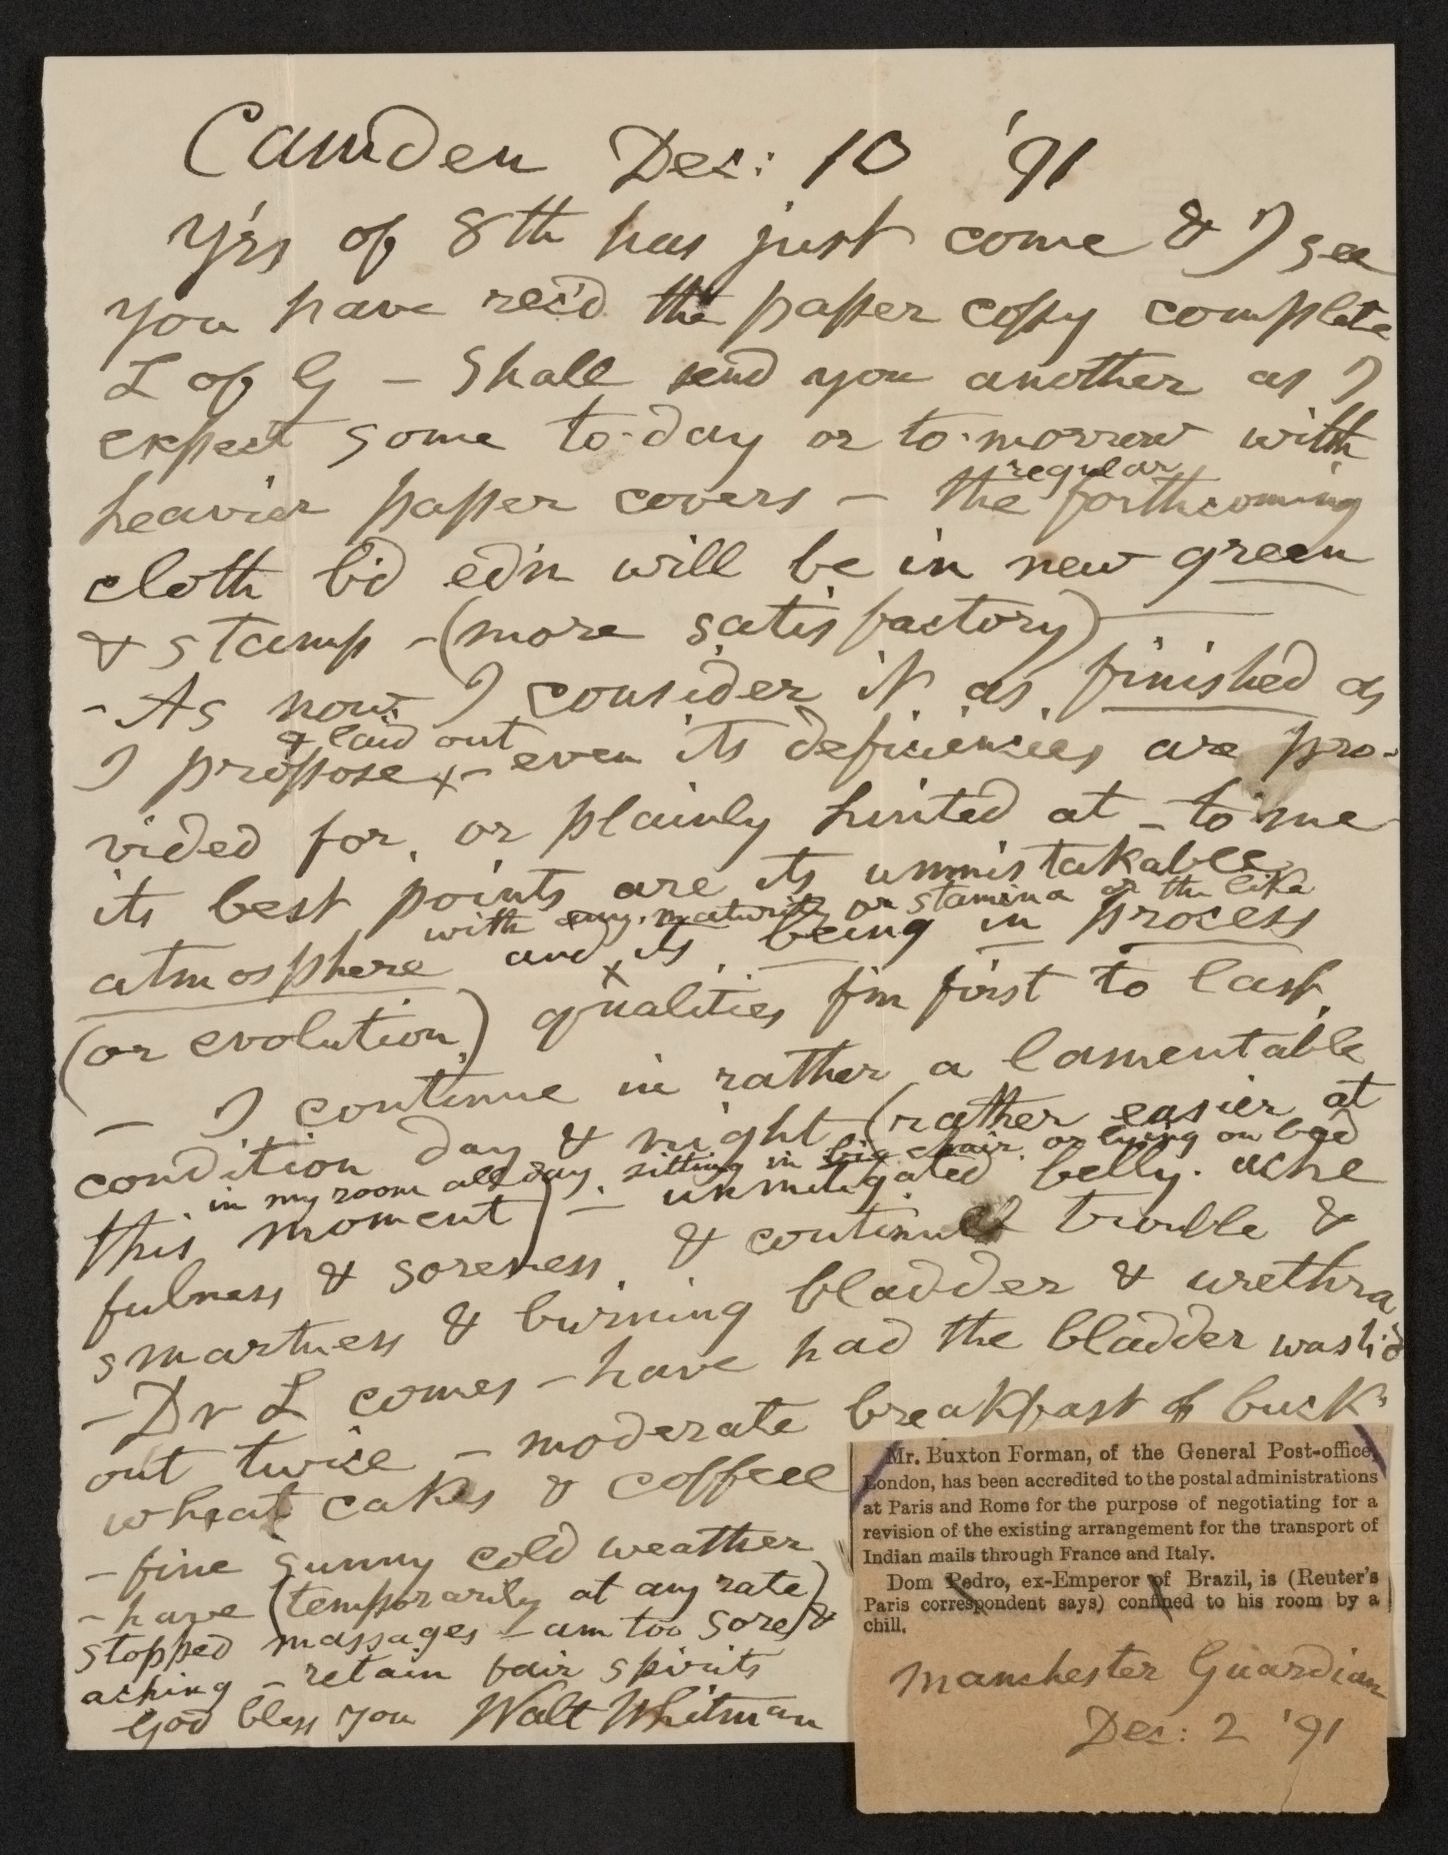 Camden Dec: 10 '91
Y'rs of 8th has just come & I see
you have rec'd the paper copy complete
L of G – Shall send you another as I
expect some to-day or to-morrow with
heavier paper covers – the regular forthcoming
cloth b'd ed'n will be in new green
& stamp – (more satisfactory) –
– As now I consider it as finished as
I propose & laid out – even its deficiencies are pro-
vided for, or plainly hinted at – to me
its best points are its unmistakable
atmosphere and with any maturity or stamina or the like its being in process
(or evolution) qualities f'm first to last.
– I continue in rather a lamentable
condition day & night (rather easier at
this moment in my room all day, sitting in big chair, or lying on bed) – unmitigated belly-ache
fulness & soreness, & continued trouble &
smartness & burning bladder & urethra
– Dr L comes – have had the bladder wash'd
out twice – moderate breakfast of buck-
wheat cakes & coffee
– fine sunny cold weather
– have (temporarily at any rate)
stopped massages – am too sore &
aching – retain fair spirits
God bless you Walt Whitman
Mr. Buxton Forman, of the General Post-office,
London, has been accredited to the postal administrations
at Paris and Rome for the purpose of negotiating for a
revision of the existing arrangement for the transport of
Indian mails through France and Italy.
Dom Pedro, ex-Emperor of Brazil, is (Reuter's
Paris correspondent says) confined to his room by a
chill.
Manchester Guardian
Dec: 2 '91